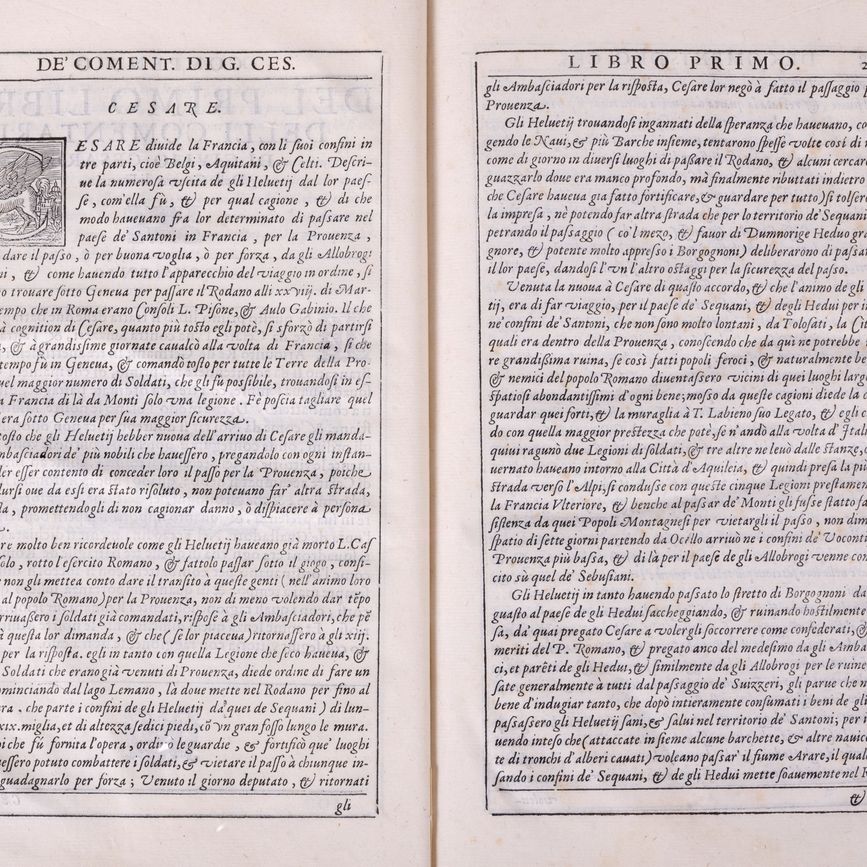 DE' COMENT. DI G. CES.
CESARE.
CESARE diuide la Francia, con li suoi confini in
tre parti, cioè Belgi, Aquitani, & Celti. Descri-
ue la numerosa vscita de gli Heluetij dal lor paes-
se, com'ella fù, & per qual cagione, & di che
modo haueuano fra lor determinato di passare nel
paese de' Santoni in Francia, per la Prouenza,
dare il passo, ò per buona voglia, ò per forza, da gli Allobrogi
ni, & come hauendo tutto l'apparecchio del viaggio in ordine, si
o trouare sotto Geneua per passare il Rodano alli xxviij. di Mar-
tempo che in Roma erano Consoli L. Pisone, & Aulo Gabinio. Il che
à cognition di Cesare, quanto più tosto egli potè, si sforzò di partirsi
, & à grandissime giornate caualcò alla volta di Francia, sì che
tempo fù in Geneua, & comandò tosto per tutte le Terre della Pro-
uel maggior numero di Soldati, che gli fù possibile, trouandosi in es-
a Francia di là da Monti solo vna legione. Fè poscia tagliare quel
era sotto Geneua per sua maggior sicurezza.
tosto che gli Heluetij hebber nuoua dell'arriuo di Cesare gli manda-
mbasciadori de' più nobili che hauessero, pregandolo con ogni instan-
ler esser contento di conceder loro il passo per la Prouenza, poiche
dursi oue da essi era stato risoluto, non poteuano far' altra strada,
la, promettendogli di non cagionar danno, ò dispiacere à persona
.
re molto ben ricordeuole come gli Heluetij haueano già morto L. Cas
solo, rotto l'esercito Romano, & fattolo passar sotto il giogo, consi-
non gli mettea conto dare il transito à queste genti (nell'animo loro
al popolo Romano) per la Prouenza, non di meno volendo dar tẽpo
rriuassero i soldati già comandati, rispose à gli Ambasciadori, che pẽ
à questa lor dimanda, & che (se lor piaceua) ritornassero à gli xiij.
per la risposta. egli in tanto con quella Legione che seco haueua, &
Soldati che erano già venuti di Prouenza, diede ordine di fare un
ominciando dal lago Lemano, là doue mette nel Rodano per fino al
ra. che parte i confini de gli Heluetij da' quei de Sequani) di lun-
xix. miglia, et di altezza sedici piedi, cõ vn gran fosso lungo le mura.
oi che fù fornita l'opera, ordinò le guardie, & fortificò que' luoghi
essero potuto combattere i soldati, & vietare il passo à chiunque in-
guadagnarlo per forza; Venuto il giorno deputato, & ritornati
gli
LIBRO PRIMO. 2
gli Ambasciadori per la risposta, Cesare lor negò à fatto il passaggio p
Prouenza.
Gli Heluetij trouandosi ingannati della speranza che haueuano, co
gendo le Naui, & più Barche insieme, tentarono spesse volte così di n
come di giorno in diuersi luoghi di passare il Rodano, & alcuni cercar
guazzarlo doue era manco profondo, mà finalmente ributtati indietro
che Cesare haueua già fatto fortificare, & guardare per tutto) si tolser
la impresa, nè potendo far altra strada che per lo territorio de' Sequani
petrando il passaggio (co'l mezo, & fauor di Dumnorige Heduo gra
gnore, & potente molto appresso i Borgognoni) deliberarono di passar
il lor paese, dandosi l'vn l'altro ostaggi per la sicurezza del passo.
Venuta la nuoua à Cesare di questo accordo, & che l'animo de gl
tij, era di far viaggio, per il paese de' Sequani, & degli Hedui per in
ne' confini de' Santoni, che non sono molto lontani, da Tolosati, la Ci
quali era dentro della Prouenza, conoscendo che da quì ne potrebbe
re grandissima ruina, se così fatti popoli feroci, & naturalmente be
& nemici del popolo Romano diuentassero vicini di quei luoghi larg
spatiosi abondantissimi d'ogni bene; mosso da queste cagioni diede la c
guardar quei forti, & la muraglia à T. Labieno suo Legato, & egli c
do con quella maggior prestezza che potè, se n'andò alla volta d'Itali
quiui ragunò due Legioni di soldati, & tre altre ne leuò dalle stanze, c
uernato haueano intorno alla Città d'Aquileia, & quindi presa la pi
strada verso l'Alpi, si condusse con queste cinque Legioni prestamen
la Francia Vlteriore, & benche al passar de' Monti gli fusse statto fa
sistenza da quei Popoli Montagnesi per vietargli il passo, non dim
spatio di sette giorni partendo da Ocello arriuò ne i confini de' Voconti
Prouenza più bassa, & di là per il paese de gli Allobrogi venne con
cito sù quel de' Sebusiani.
Gli Heluetij in tanto hauendo passato lo stretto di Borgognoni da
guasto al paese de gli Hedui saccheggiando, & ruinando hostilmente
sa, da' quai pregato Cesare a volergli soccorrere come confederati, &
meriti del P. Romano, & pregato anco del medesimo da gli Amba
ci, et parẽti de gli Hedui, & similmente da gli Allobrogi per le ruine
sate generalmente à tutti dal passaggio de' Suizzeri, gli parue che n
bene d'indugiar tanto, che dopò intieramente consumati i beni de gli
passassero gli Heluetij sani, & salui nel territorio de' Santoni; per n
uendo inteso che (attaccate in sieme alcune barchette, & altre nauic
te di tronchi d'alberi cauati) voleano passar' il fiume Arare, il qual
sando i confini de' Sequani, & de gli Hedui mette soauemente nel R
&